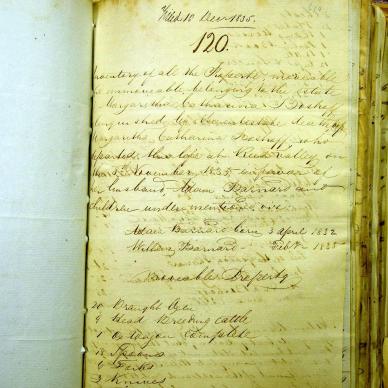 Filed 18 Decr 1835.
120.
Inventory of all the Property, moveable
& immoveable, belonging to the Estate
Margaretha Catharina Boshoff
by
Margaretha Catharina Boshoff, who
departed this life at on
the November, 1835 in favour of
her husband, Adam Barnard and
children undermentioned, viz:
Adam Barnard born 3 April 1832
William Barnard " Feb 1835
Moveable Property
20 Draught Oxen
Head Breeding Cattle
1 Ox Wagon Complete
Spoons
6 Forks
Knives